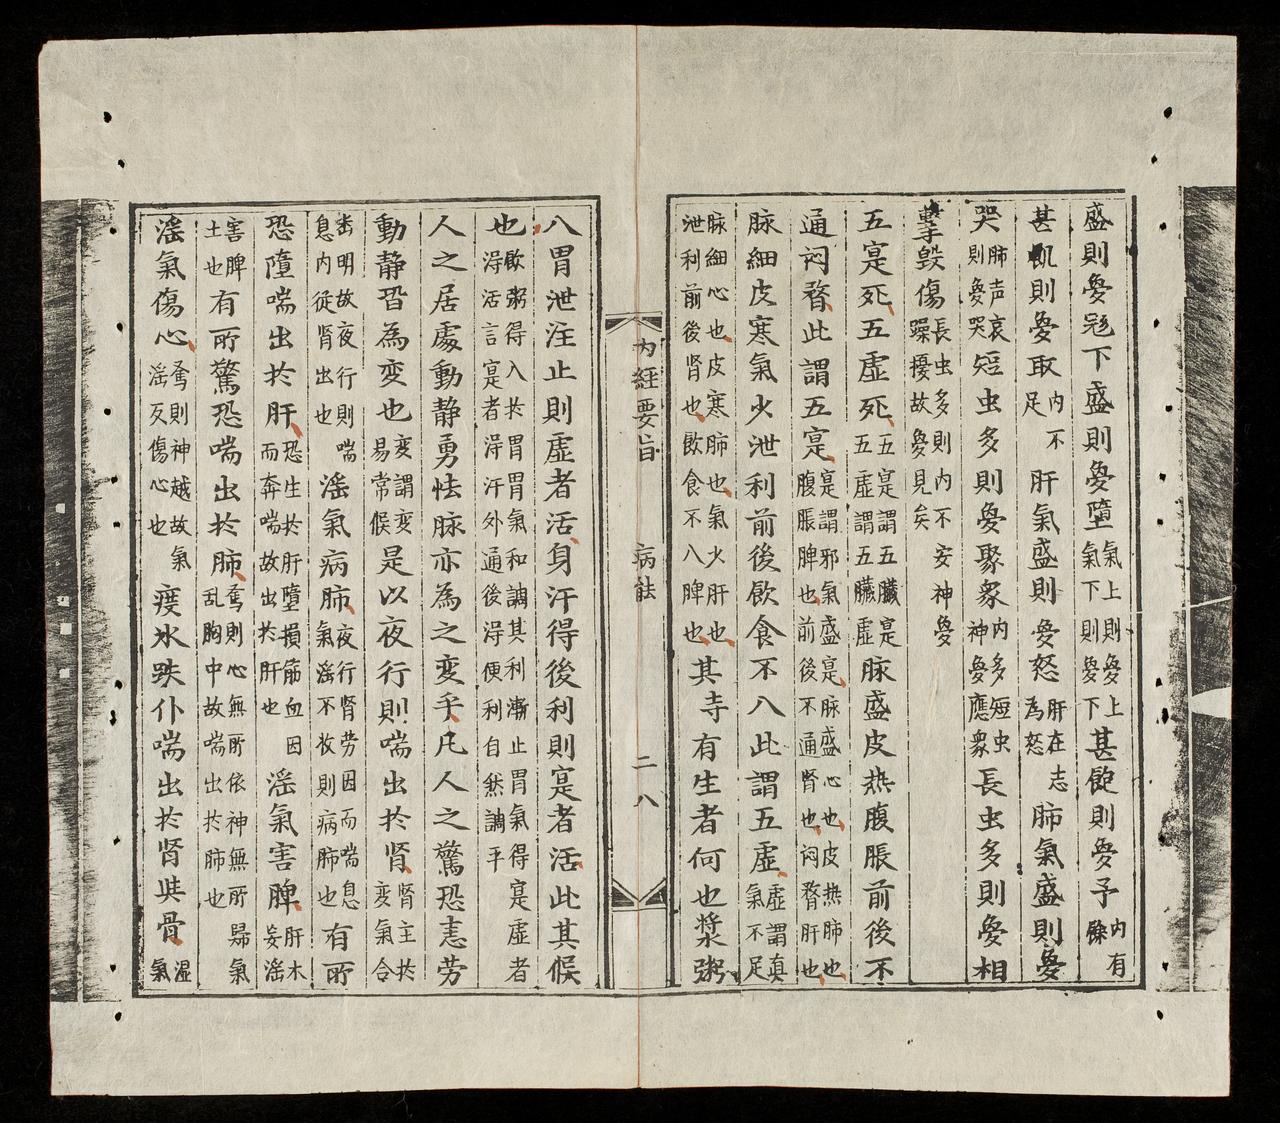 盛則夢下盛則夢墮氣上則夢上氣下則夢下甚飽則夢予內有餘
甚飢則夢取內不足肝氣盛則夢怒肝在志為怒肺氣盛則夢
哭肺声哀則夢哭短虫多則夢聚衆內多短虫神夢應衆長虫多則夢相
擊毀傷長虫多則内不安神夢躁擾故夢見矣
五寔死五虛死五寔謂五臓寔五虛謂五臓虛脉盛皮热腹脹前後不
通闷瞀此謂五寔寔謂邪氣盛寔脉盛心也皮热肺也腹脹脾也前後不通腎也闷瞀肝也
脉細皮寒氣火泄利前後飲食不八此謂五虛虛謂真氣不足
脉細心也皮寒肺也氣火肝也泄利前後腎也飲食不八脾也其寺有生者何也漿粥
內經要旨 病能 二八
八胃泄注止則虛者活身汗得後利則寔者活此其候
也歃粥得入扵胃胃氣和調其利漸止胃氣得寔虛者淂活言寔者淂汗外通後淂便利自然調平
人之居處動静勇怯脉亦為之变乎凡人之驚恐恚劳
動静皆為变也变謂变易常候是以夜行則喘出扵腎腎主扵变氣合
明故夜行則喘息内従腎出也滛氣病肺夜行腎劳因而喘息氣滛不收則病肺也有所
恐墮喘出扵肝恐生扵肝墮損筋血因而奔喘故出扵肝也滛氣害脾肝木妄滛
害脾土也有所驚恐喘出扵肺驚則心無所依神無所歸氣乱胸中故喘出扵肺也
滛氣傷心驚則神越故氣滛反傷心也度水跌仆喘出扵腎與骨湿氣